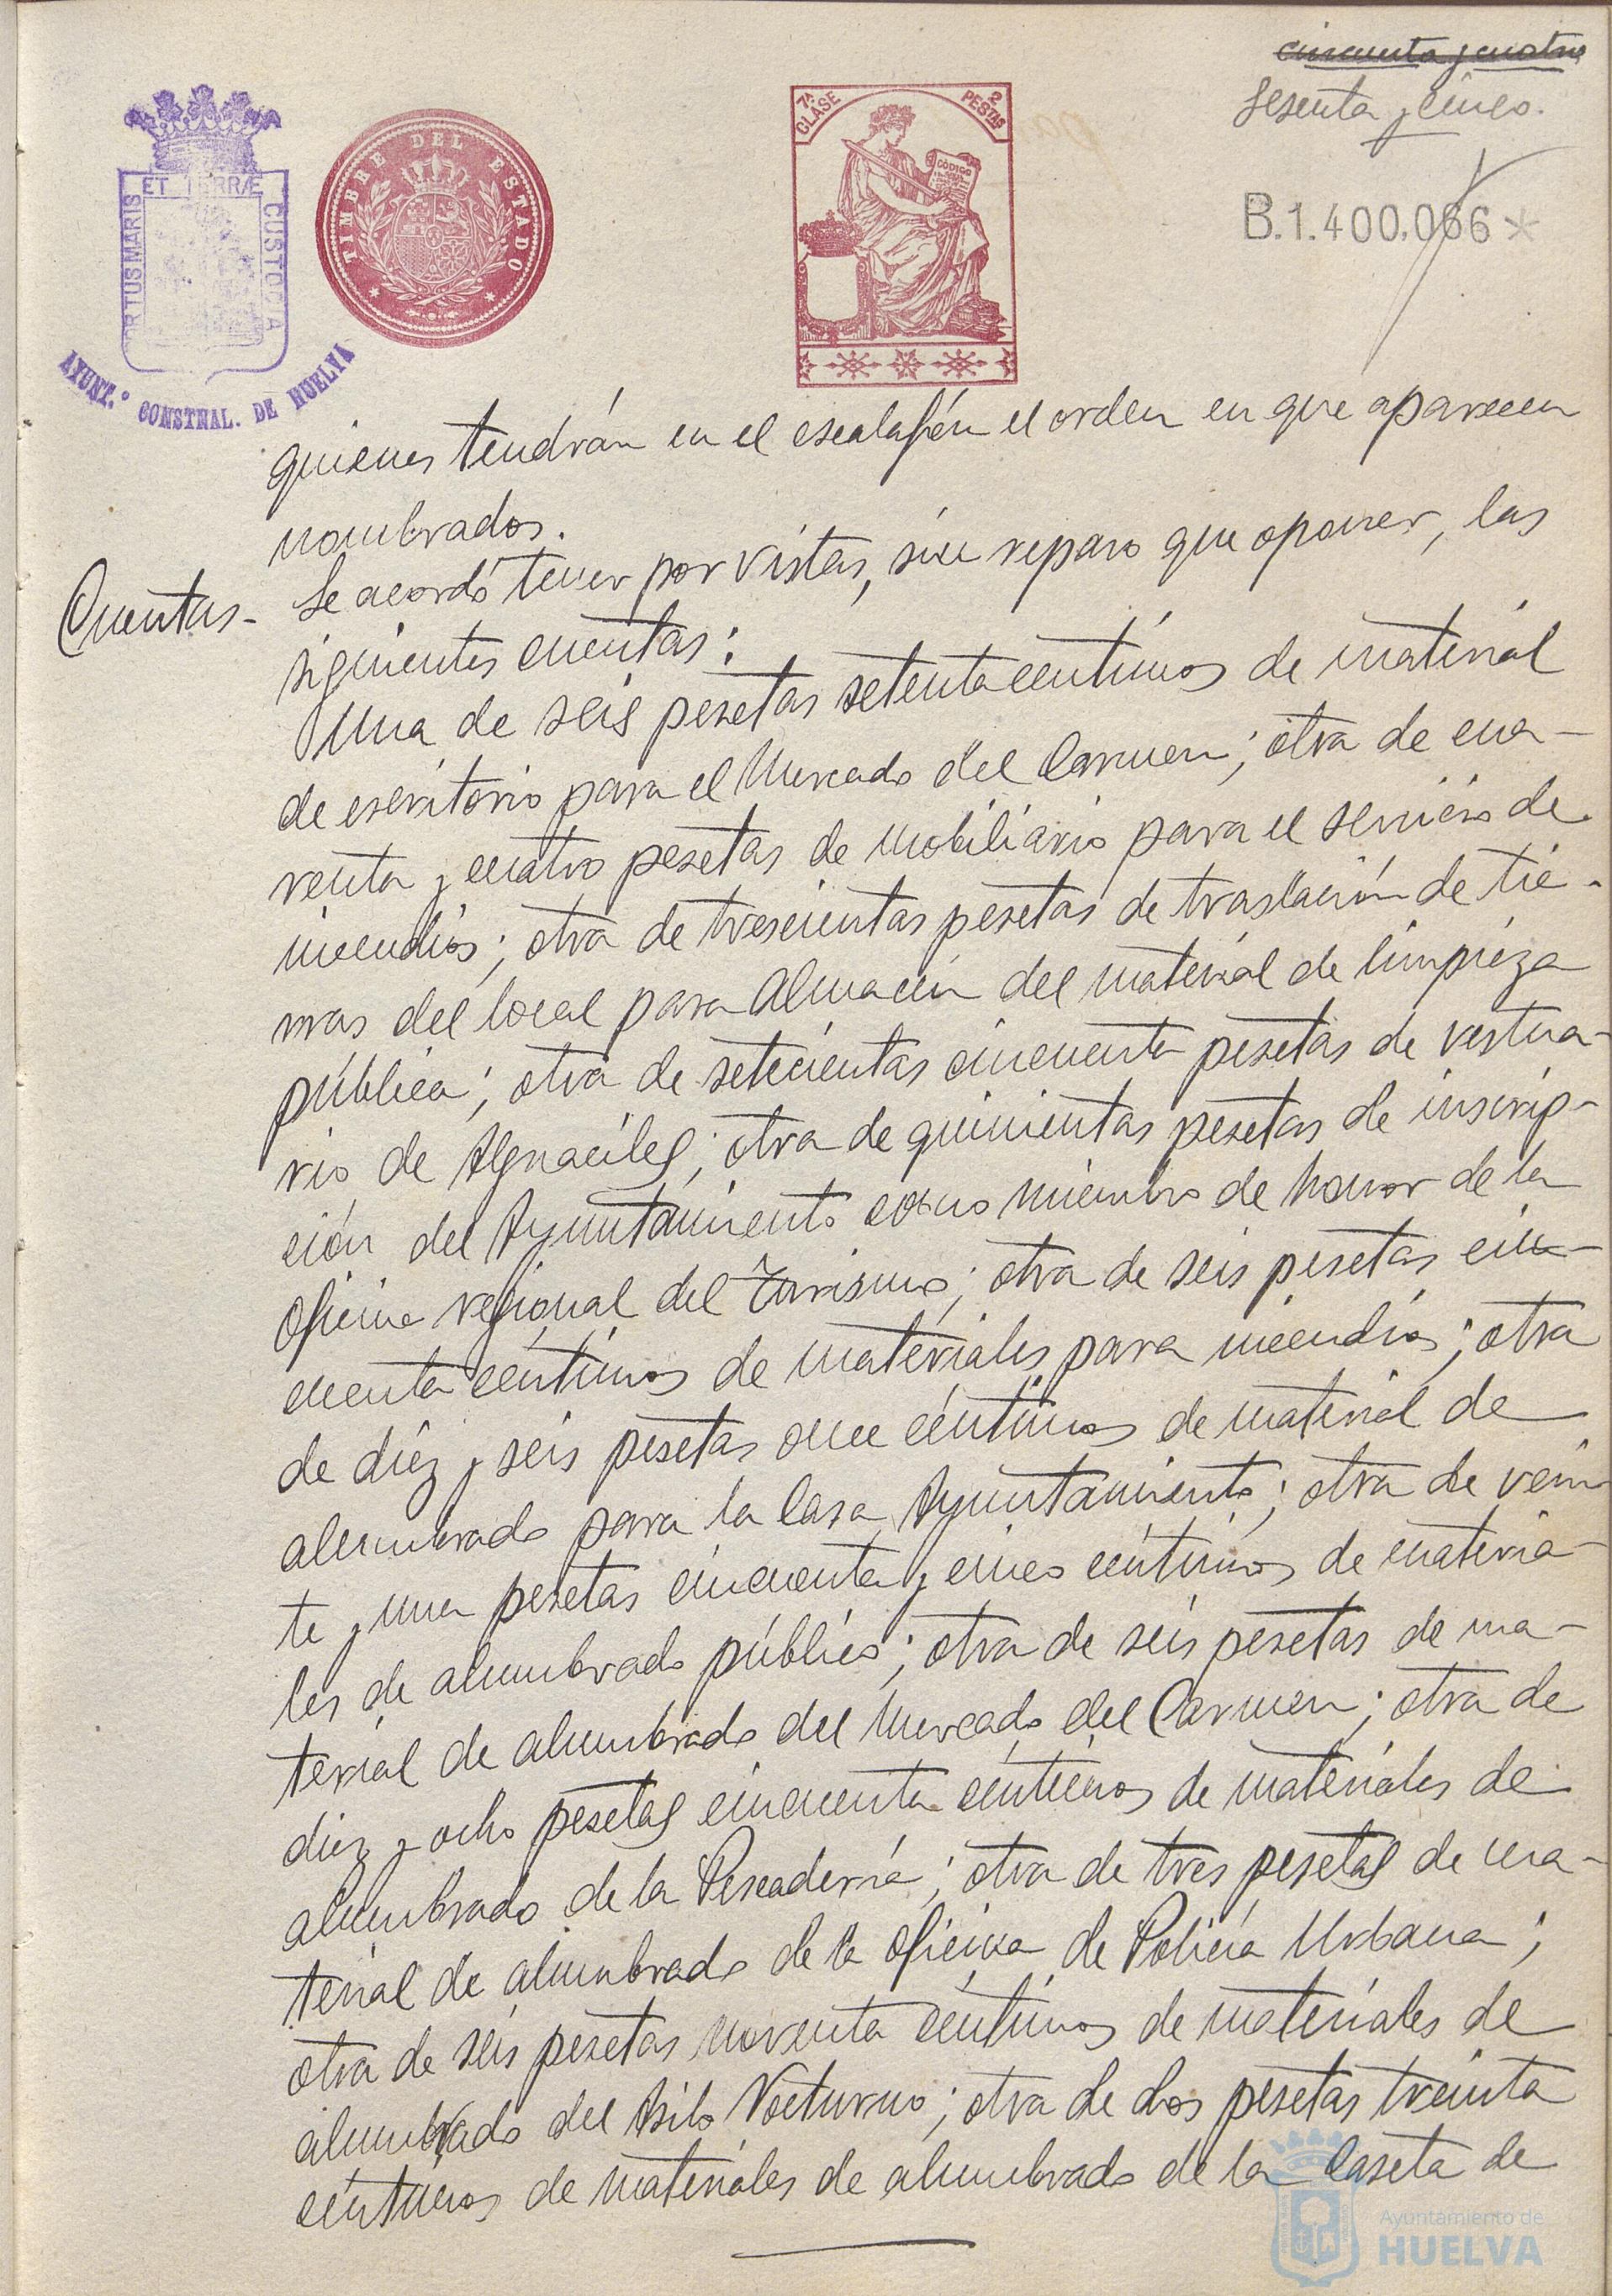 cincuenta y cuatro
sesenta y cinco.
7ª CLASE
2 PESETAS
CÓDIGO
TIMBRE DEL ESTADO
ET TERRÆ
PORTUS MARIS
CUSTODIA
AYUNT.º CONSTNAL. DE HUELVA
B.1.400.066*
quienes tendrán en el escalafón el orden en que aparecen
nombrados.
Cuentas- Se acordó tener por vistas, sin reparo que oponer, las
siguientes cuentas:
Una de seis pesetas setenta centimos de material
de escritorio para el Mercado del Carmen; otra de cua-
renta y cuatro pesetas de mobiliario para el servicio de
incendios; otra de trescientas pesetas de traslación de tie-
rras del local para Almacén del material de limpieza
pública; otra de setecientas cincuenta pesetas de vestua-
rio de Alguaciles; otra de quinientas pesetas de inscrip-
ción del Ayuntamiento como miembro de honor de la
Oficina regional del Turismo; otra de seis pesetas cin-
cuenta céntimos de materiales para incendios; otra
de diez y seis pesetas once céntimos de material de
alumbrado para la Casa Ayuntamiento; otra de vein
te y una pesetas cincuenta y cinco céntimos de materia-
les de alumbrado público; otra de seis pesetas de ma-
terial de alumbrado del Mercado del Carmen; otra de
diez y ocho pesetas cincuenta céntimos de materiales de
alumbrado de la Pescadería; otra de tres pesetas de ma-
terial de alumbrado de la oficina de Policía Urbana;
otra de seis pesetas noventa céntimos de materiales de
alumbrado del Asilo Nocturno; otra de dos pesetas treinta
céntimos de materiales de alumbrado de la Caseta de
Ayuntamiento de
HUELVA